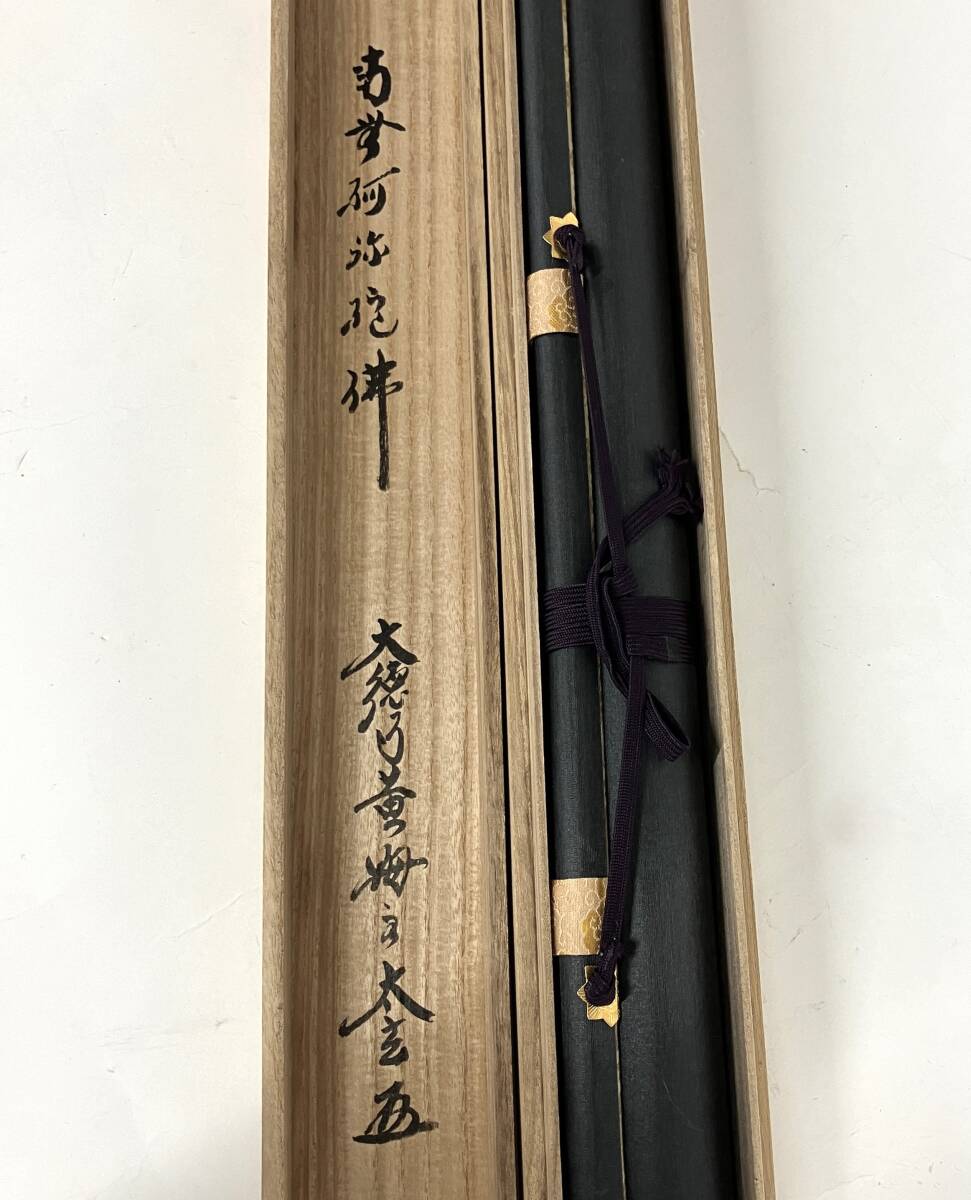 南無阿弥陀佛
大徳乃黄梅主太玄